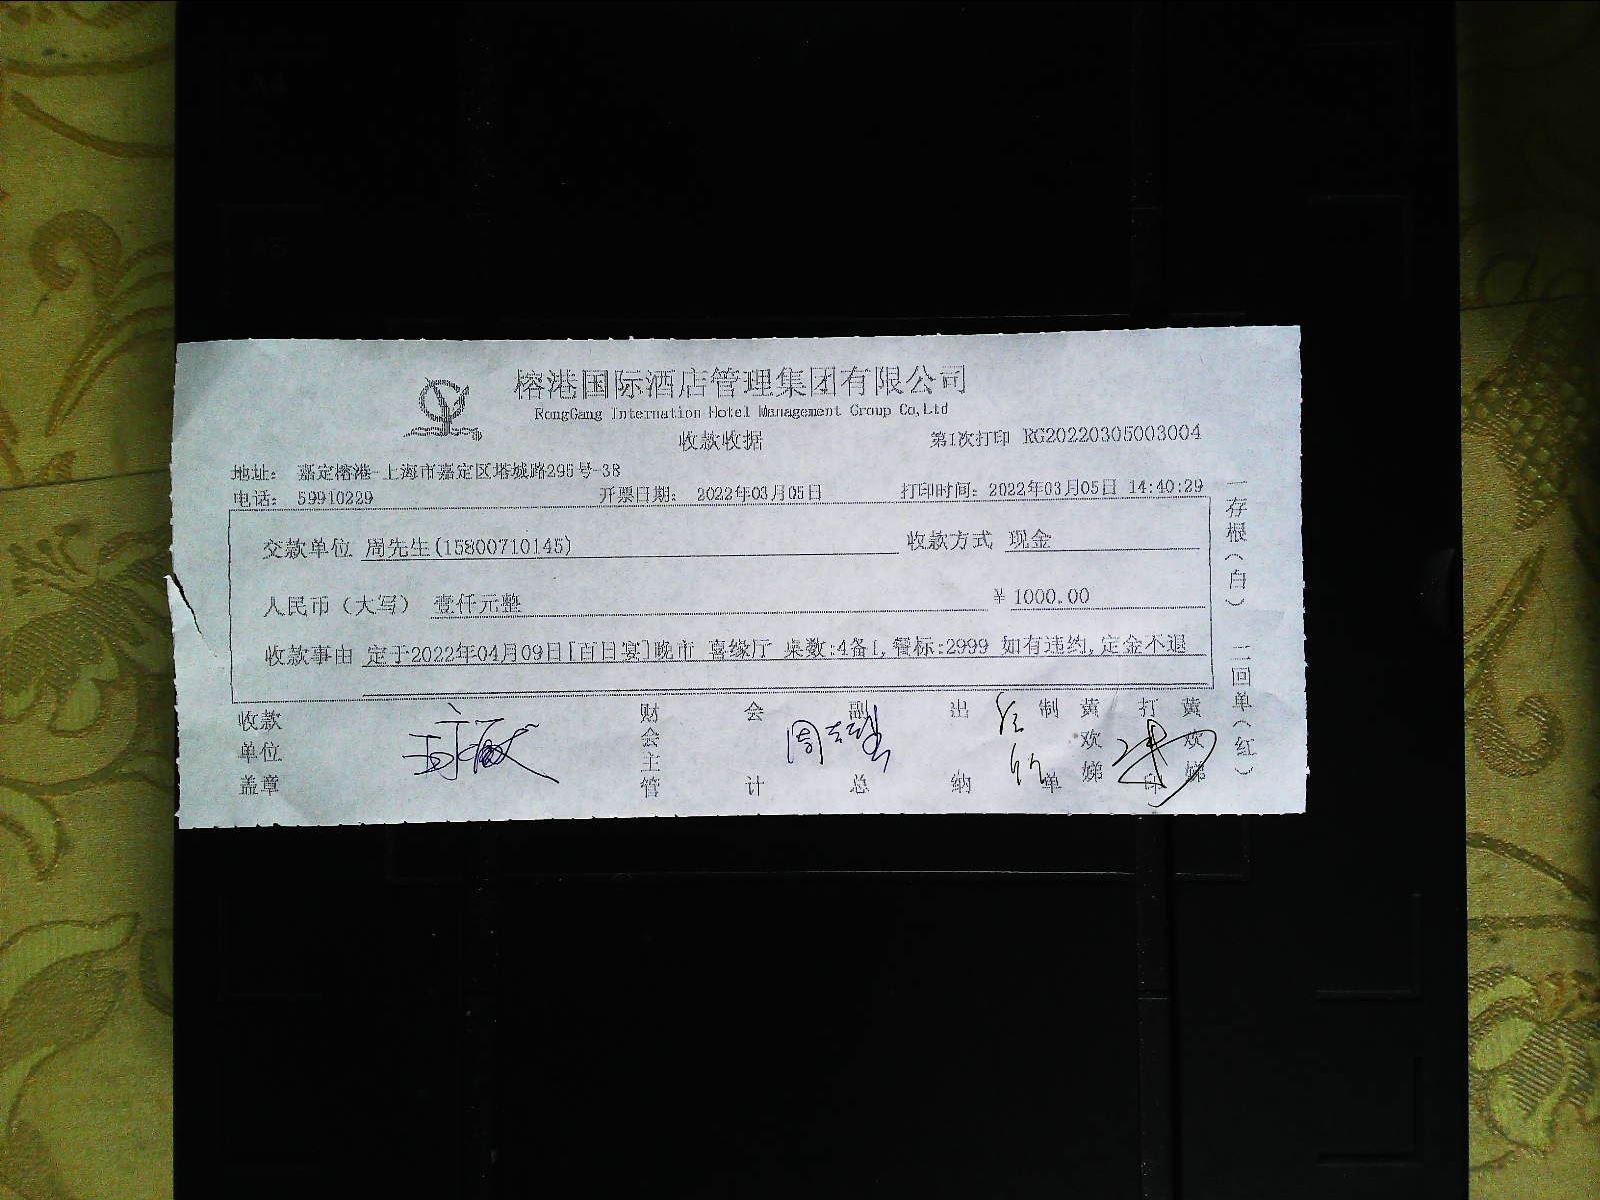 榕港国际酒店管理集团有限公司
RongGang Internation Hotel Management Group Co,Ltd
收款收据
第1次打印 RG20220305003004
地址： 嘉定榕港-上海市嘉定区塔城路295号-38
电话： 59910229 开票日期： 2022年03月05日 打印时间：2022年03月05日 14:40:29
交款单位 周先生(15800710145) 收款方式 现金
人民币（大写） 壹仟元整 ¥ 1000.00
收款事由 定于2022年04月09日[百日宴]晚市 喜缘厅 桌数:4备1,餐标:2999 如有违约,定金不退
收款单位盖章
财会主管
会计
副总
出纳
制单 黄欢娣
打印 黄欢娣
一存根（白） 二回单（红）